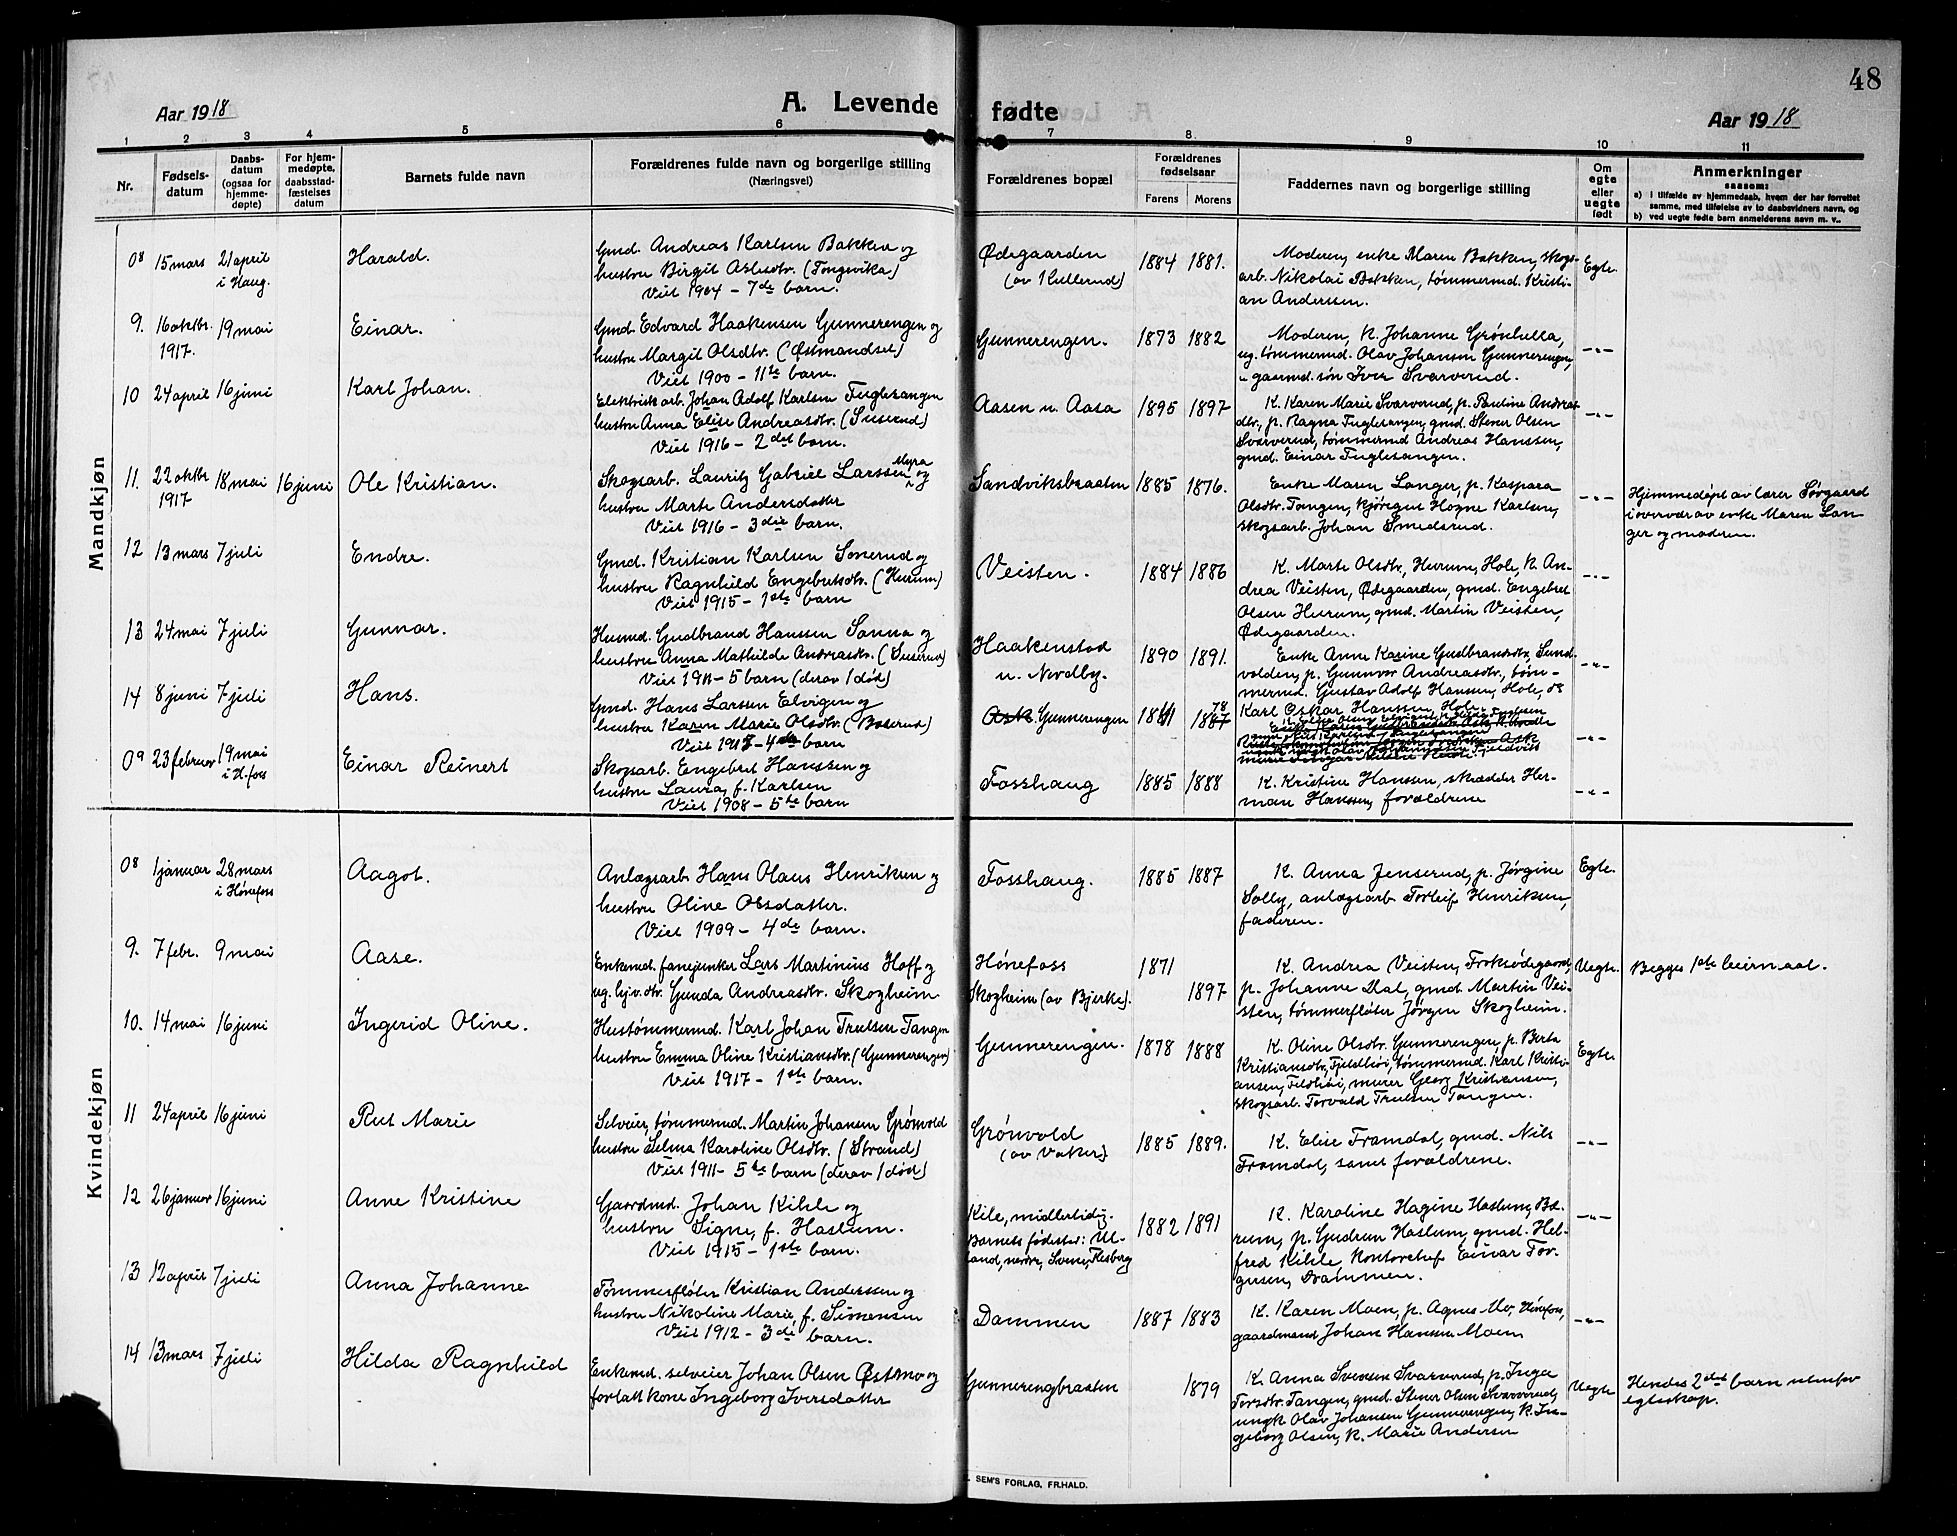 48
Aar 1918
A. Levende fødte
Aar 1918
1 2 3 4 5 6 7 8 9 10 11
Nr.
Fødsels-
datum
Daabs-
datum
(ogsaa for
hjemme-
døpte)
For hjem-
medøpte,
daabsstad-
fæstelses
datum
Barnets fulde navn
Forældrenes fulde navn og borgerlige stilling
(Næringsvei)
Forældrenes bopæl
Forældrenes
fødselsaar
Farens Morens
Faddernes navn og borgerlige stilling
Om
egte
eller
uegte
født
Anmerkninger
saasom:
a) i tilfælde av hjemmedaab, hvem der har forrettet
samme, med tilføielse av to daabsvidners navn, og
b) ved uegte fødte barn anmelderens navn m. v..
Mandkjøn
08 15 mars 21 april
i Haug.
Harald.
Gmd. Andreas Karlsen Bakken og
hustru Birgit Aslesdtr. (Tongevika)
Viet 1904 - 7de barn.
Ødegaarden
(av Kullerud)
1884 1881.
Moderen, enke Maren Bakken, skogs-
arb. Nikolai Bakken, tømmermd. Kristi-
an Anderssen.
Egte.
9. 16 oktbr.
1917.
19 mai
Einar.
Gmd. Edvard Haakensen Gunnerengen og
hustru Margit Olsdtr. (Østmandset)
Viet 1900 - 11te barn.
Gunnerengen.
1873 1882
Moderen, K. Johanne Grønhella,
ug. tømmermd. Olav Johansen Gunnerengen,
gaarmd. søn Iver Svarverud.
-„-
10 24 april 16 juni
Karl Johan.
Elektrisk arb. Johan Adolf Karlsen Fuglesangen
hustru Anna Elise Andreasdtr. (Suserud)
Viet 1916 - 2det barn.
Aasen u. Aasa
1895 1897
K. Karen Marie Svarverud, p. Pauline Andreas-
dtr., p. Ragna Fuglesangen, gmd. Stener Olsen
Svarverud, tømmermd Andreas Hanssen,
gmd. Einar Fuglesangen.
-„-
11. 22 oktbr
1917
18 mai 16 juni
Ole Kristian.
Skogsarb. Lauritz Gabriel Larssen Myra og
hustru Marte Andersdatter
Viet 1916 - 3die barn.
Sandviksbraaten
1885 1876.
Enke Maren Langer, p. Kaspara
Olsdtr. Tangen, kjøregut Hogne Karlsen,
skogsarb. Johan Smedsrud.
-„-
Hjemmedøpt av lærer Sørgaard
i overvær av enke Maren Lan-
ger og moderen.
12 13 mars 7 juli
Endre.
Gmd. Kristian Karlsen Sonerud og
hustru Ragnhild Engebretsdtr. (Hurum)
Viet 1915 - 1ste barn
Veisten.
1884 1886
K. Marte Olsdtr, Hurum, Hole, K. An-
drea Veisten, Ødegaarden, gmd. Engebret
Olsen Hurum, gmd. Martin Veisten,
Ødegaarden.
-„-
13 24 mai 7 juli
Gunnar.
Husmd. Gudbrand Hanssen Sanna og
hustru Anna Mathilde Andreasdtr. (Suserud)
Viet 1911 - 5 barn (derav 1 død)
Haakenstad
u. Nordby.
1890 1891.
Enke Anne Karine Gudbrandsdtr, Sund-
volden, p. Gunnvor Andreasdtr, tøm-
mermd. Gustav Adolf Hansen, Hole, og
Karl Oskar Hanssen, Hole
-„-
14 8 juni 7 juli
Hans.
Gmd. Hans Larssen Elvigen og
hustru Karen Marie Olsdtr (Boserud)
Viet 1917 - 4de barn
Ask Gunnerengen
78
-„-
09 23 februar 19 mai
i H.foss
Einar Reinert
Skogsarb. Engebret Hanssen og
hustru Laura, f. Karlsen
Viet 1908 - 5te barn
Fosshaug
1885 1888
K. Kristine Hansen, skrædder Her-
man Hanssen, forældrene
-„-
Kvindekjøn
08 1 januar 28 mars
i Hønefoss
Aagot.
Anlægsarb Hans Olaus Henriksen og
hustru Oline Olsdatter.
Viet 1909 - 4de barn.
Fosshaug.
1885 1887
K. Anna Jenserud, p. Jørgine
Solby, anlægsarb Torleif Henriksen,
faderen.
Egte.
9. 7 febr. 9 mai
Aase.
Enkemd. fanejunker Lars Martinius Hoff og
ug. tjv. dtr. Gunda Andreasdtr. Skogheim
Hønefoss
Skogheim (av Bjerke).
1871
1897
K. Andrea Veisten, Froksødegaard,
p. Johanne Dal, gmd. Martin Vei-
sten, tømmerfløter Jørgen Skogheim.
Uegte.
Begges 1ste leiermaal.
10. 14 mai 16 juni
Ingerid Oline.
Hustømmermd. Karl Johan Trulsen Tangen
hustru Emma Oline Kristiansdtr. (Gunnerengen)
Viet 1917 - 1ste barn.
Gunnerengen.
1878 1888
K. Oline Olsdtr. Gunnerengen, p. Berta
Kristiansdtr, Fjeldhøi, tømmermd. Karl Kristi-
ansen, Feldhøi, murer Georg Kristiansen,
skogsarb. Torvald Trulsen Tangen.
Egte.
11 24 april 16 juni
Rut Marie
Selveier, tømmermd. Martin Johansen Grønvold
hustru Selma Karoline Olsdtr. (Strand)
Viet 1911 - 5te barn (derav 1 død)
Grønvold
(av Vaker)
1885 1889.
K. Elise Framdal, gmd. Nils
Framdal, samt forældrene.
-„-
12 26 januar 16 juni
Anne Kristine
Gaardmd. Johan Kihle og
hustru Signe, f. Haslum.
Viet 1915 - 1ste barn.
Kile, midlertidig.
Barnets fødested: Ul-
land, nedre, Svene, Flesberg
1882 1891
K. Karoline Hagine Haslum, Bæ-
rum, p. Gudrun Haslum, gmd. Hel-
fred Kihle, kontorchef Einar Tor-
gusen, Drammen.
-„-
13 12 april 7 juli
Anna Johanne
Tømmerfløter Kristian Anderssen og
hustru Nikoline Marie, f. Simensen
Viet 1912 - 3die barn.
Dammen
1887 1883
K. Karen Moen, p. Agnes Mo, Hønefoss,
gaardmand Johan Hansen Moen
-„-
14 13 mars 7 juli
Hilda Ragnhild
Enkemd. selveier Johan Olsen Østmo og
forlatt kone Ingeborg Iversdatter
Gunnerengbraaten
1879
K. Anna Svensen Svarverud, p. Inga
Torsdtr. Tangen, gmd. Stener Olsen Svarverud,
ungk Olav Johansen Gunnerengen, K. In-
geborg Olsen, K. Marie Andersen
Uegte
Hendes 2det barn utenfor
egteskap.
SEM'S FORLAG, FR.HALD.